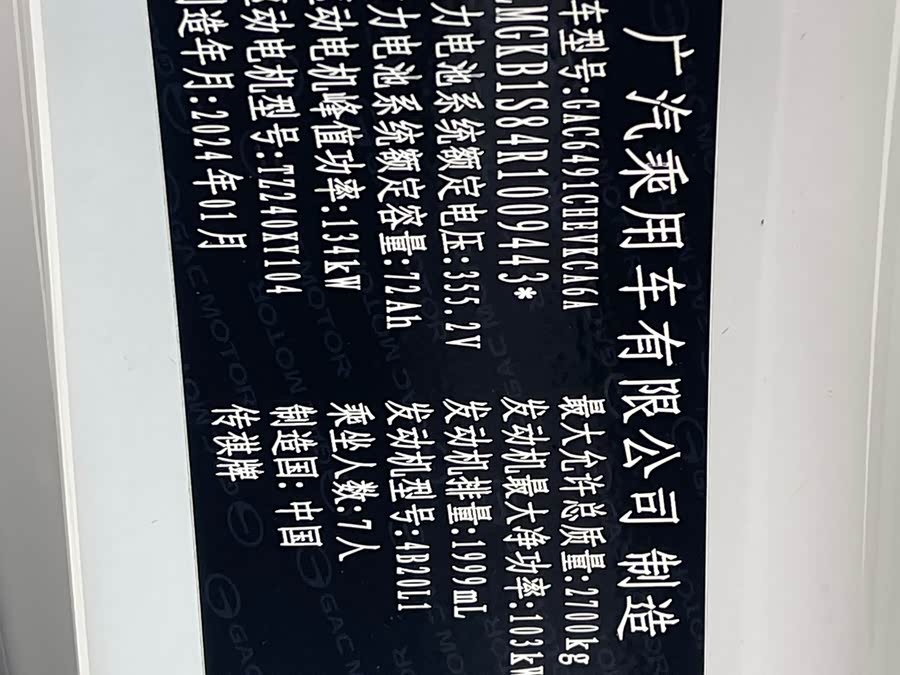 广汽乘用车有限公司 制造
车型号:GAC6491CHEVKCA6A
最大允许总质量:2700kg
MGKB1S84R1009443*
发动机最大净功率:103kW
力电池系统额定电压:355.2V
发动机排量:1999mL
力电池系统额定容量:72Ah
发动机型号:4B20L1
动电机峰值功率:134kW
乘坐人数:7人
动电机型号:TZ240XY104
制造国:中国
造年月:2024年01月
传祺牌